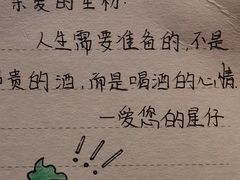 亲爱的生物:
人生需要准备的,不是
贵的酒,而是喝酒的心情.
—爱您的星仔
!!!